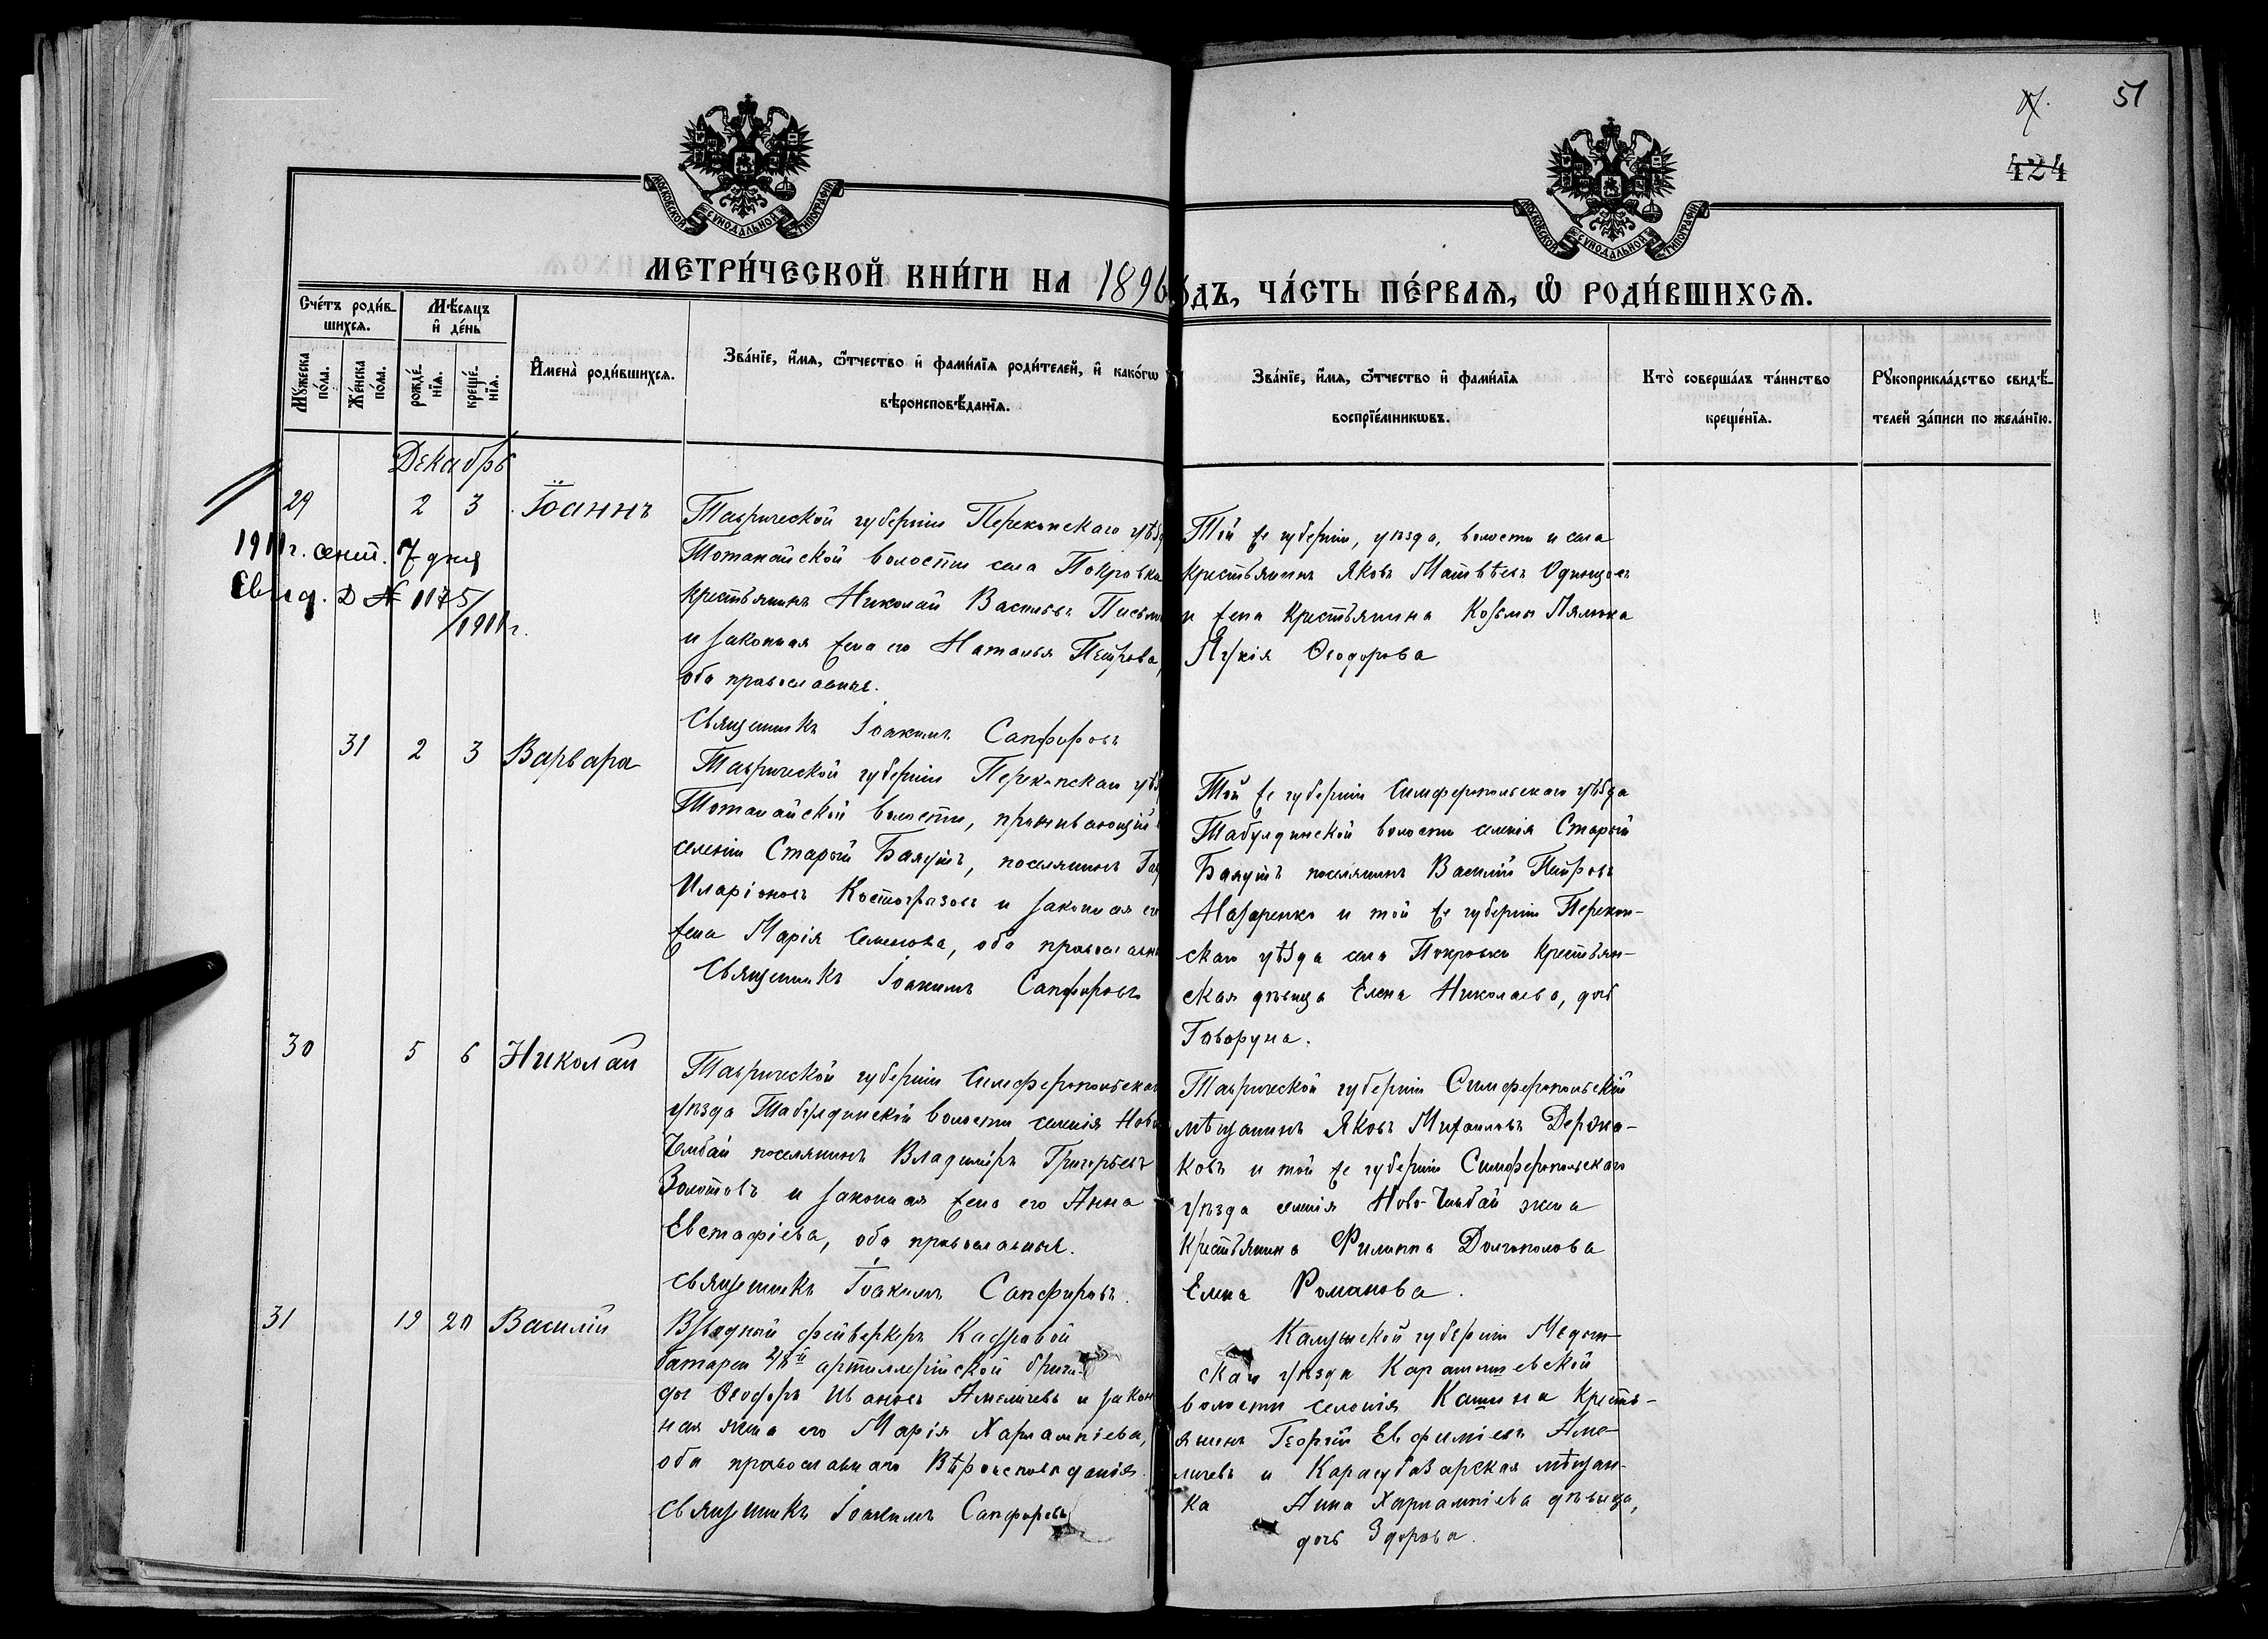 51
424
МОСКОВСКОЙ СѴНОДАЛЬНОЙ ТИПОГРАФІИ
МОСКОВСКОЙ СѴНОДАЛЬНОЙ ТИПОГРАФІИ
МЕТРИ́ЧЕСКОЙ КНИ́ГИ НА 1896
ОДЪ, ЧА́СТЬ ПЕ́РВАЯ, Ѽ РОДИ́ВШИХСЯ.
Сче́тъ роди́в-
шихся.
Мꙋ́жеска по́ла.
Же́нска по́ла.
Мѣ́сяцъ и҆ де́нь
рожде́нїя.
креще́нїя.
И҆мена̀ роди́вшихся.
Зва́нїе, и҆́мя, ѻ҆́тчество и҆ фами́лїя роди́телей, и҆ како́гѡ
вѣроисповѣ́данїя.
Зва́нїе, и҆́мя, ѻ҆́тчество и҆ фами́лїя
воспрїе́мникѡвъ.
Кто̀ соверша́лъ та́инство
креще́нїя.
Рꙋкоприкла́дство свидѣ́-
телей за́писи по жела́нїю.
Декабрь
29 2 3 Іоаннъ
1911 г. сент. 7 дня
Свид. Д № 1175/1911 г.
Таврической губерніи Перекопскаго уѣзд
Тотанайской волости села Покровка
крестьянинъ Николай Васильевъ
и законная жена его Наталья Петрова,
оба православные.
Священникъ Іоакимъ Сапфировъ
Той же губерніи, уѣзда, волости и села
крестьянинъ Яковъ Матвѣевъ Одинцовъ
и жена крестьянина Козьмы
Феодорова
31 2 3 Варвара
Таврической губерніи Перекопскаго уѣз
Тотанайской волости, проживающій
селеніи Старый Баяутъ, поселянинъ
Иларіоновъ Костогрызовъ и законная его
жена Марія Семенова, оба православн
Священникъ Іоакимъ Сапфировъ
Той же губерніи Симферопольскаго уѣзда
Табулдинской волости селенія Старый
Баяутъ поселянинъ Василій Петровъ
Назаренко и той же губерніи Перекоп-
скаго уѣзда села Покровки крестьян-
ская дѣвица Елена Николаева, дочь
Говоруна.
30 5 6 Николай
Таврической губерніи Симферопольскаго
уѣзда Табулдинской волости селенія Ново
поселянинъ Владиміръ Григорьевъ
Золотовъ и законная жена его Анна
Евстафіева, оба православные.
Священникъ Іоакимъ Сапфировъ.
Таврической губерніи Симферопольскій
мѣщанинъ Яковъ Михаиловъ Держа-
ковъ и той же губерніи Симферопольскаго
уѣзда селенія жена
крестьянина Филиппа Долгополова
Елена Романова.
31 19 20 Василій
Взводный фейверкеръ Кадровой
батареи артиллерійской брига-
ды Феодоръ Ивановъ Амеличевъ и закон
ная жена его Марія Харлампіева,
оба православнаго Вѣроисповѣданія.
Священникъ Іоакимъ Сапфировъ
Калужской губерніи Медын-
скаго уѣзда
волости селенія Кашина кресть-
янинъ Георгій Евфиміевъ Аме-
личевъ и Карасубазарская мѣщан-
ка Анна Харлампіева дѣвица,
дочь Здорова.